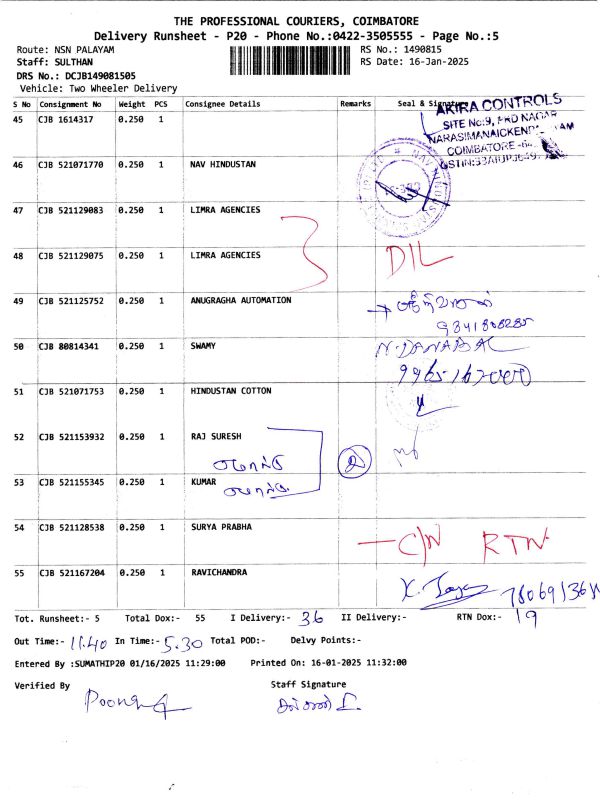 THE PROFESSIONAL COURIERS, COIMBATORE
Delivery Runsheet - P20 - Phone No.:0422-3505555 - Page No.:5
Route: NSN PALAYAM RS No.: 1490815
Staff: SULTHAN RS Date: 16-Jan-2025
DRS No.: DCJB149081505
Vehicle: Two Wheeler Delivery
S No Consignment No Weight PCS Consignee Details Remarks Seal & Signature
45 CJB 1614317 0.250 1
AKIRA CONTROLS
SITE No:9,
NAGAR
COIMBATORE
46 CJB 521071770 0.250 1 NAV HINDUSTAN
47 CJB 521129083 0.250 1 LIMRA AGENCIES
48 CJB 521129075 0.250 1 LIMRA AGENCIES DIL
49 CJB 521125752 0.250 1 ANUGRAGHA AUTOMATION
50 CJB 80814341 0.250 1 SWAMY N. DANABAL
51 CJB 521071753 0.250 1 HINDUSTAN COTTON
52 CJB 521153932 0.250 1 RAJ SURESH
2
53 CJB 521155345 0.250 1 KUMAR
54 CJB 521128538 0.250 1 SURYA PRABHA C/N RTN
55 CJB 521167204 0.250 1 RAVICHANDRA
Tot. Runsheet:- 5 Total Dox:- 55 I Delivery:- 36 II Delivery:- RTN Dox:- 19
Out Time:- 11.40 In Time:- 5.30 Total POD:- Delvy Points:-
Entered By :SUMATHIP20 01/16/2025 11:29:00 Printed On: 16-01-2025 11:32:00
Verified By Staff Signature